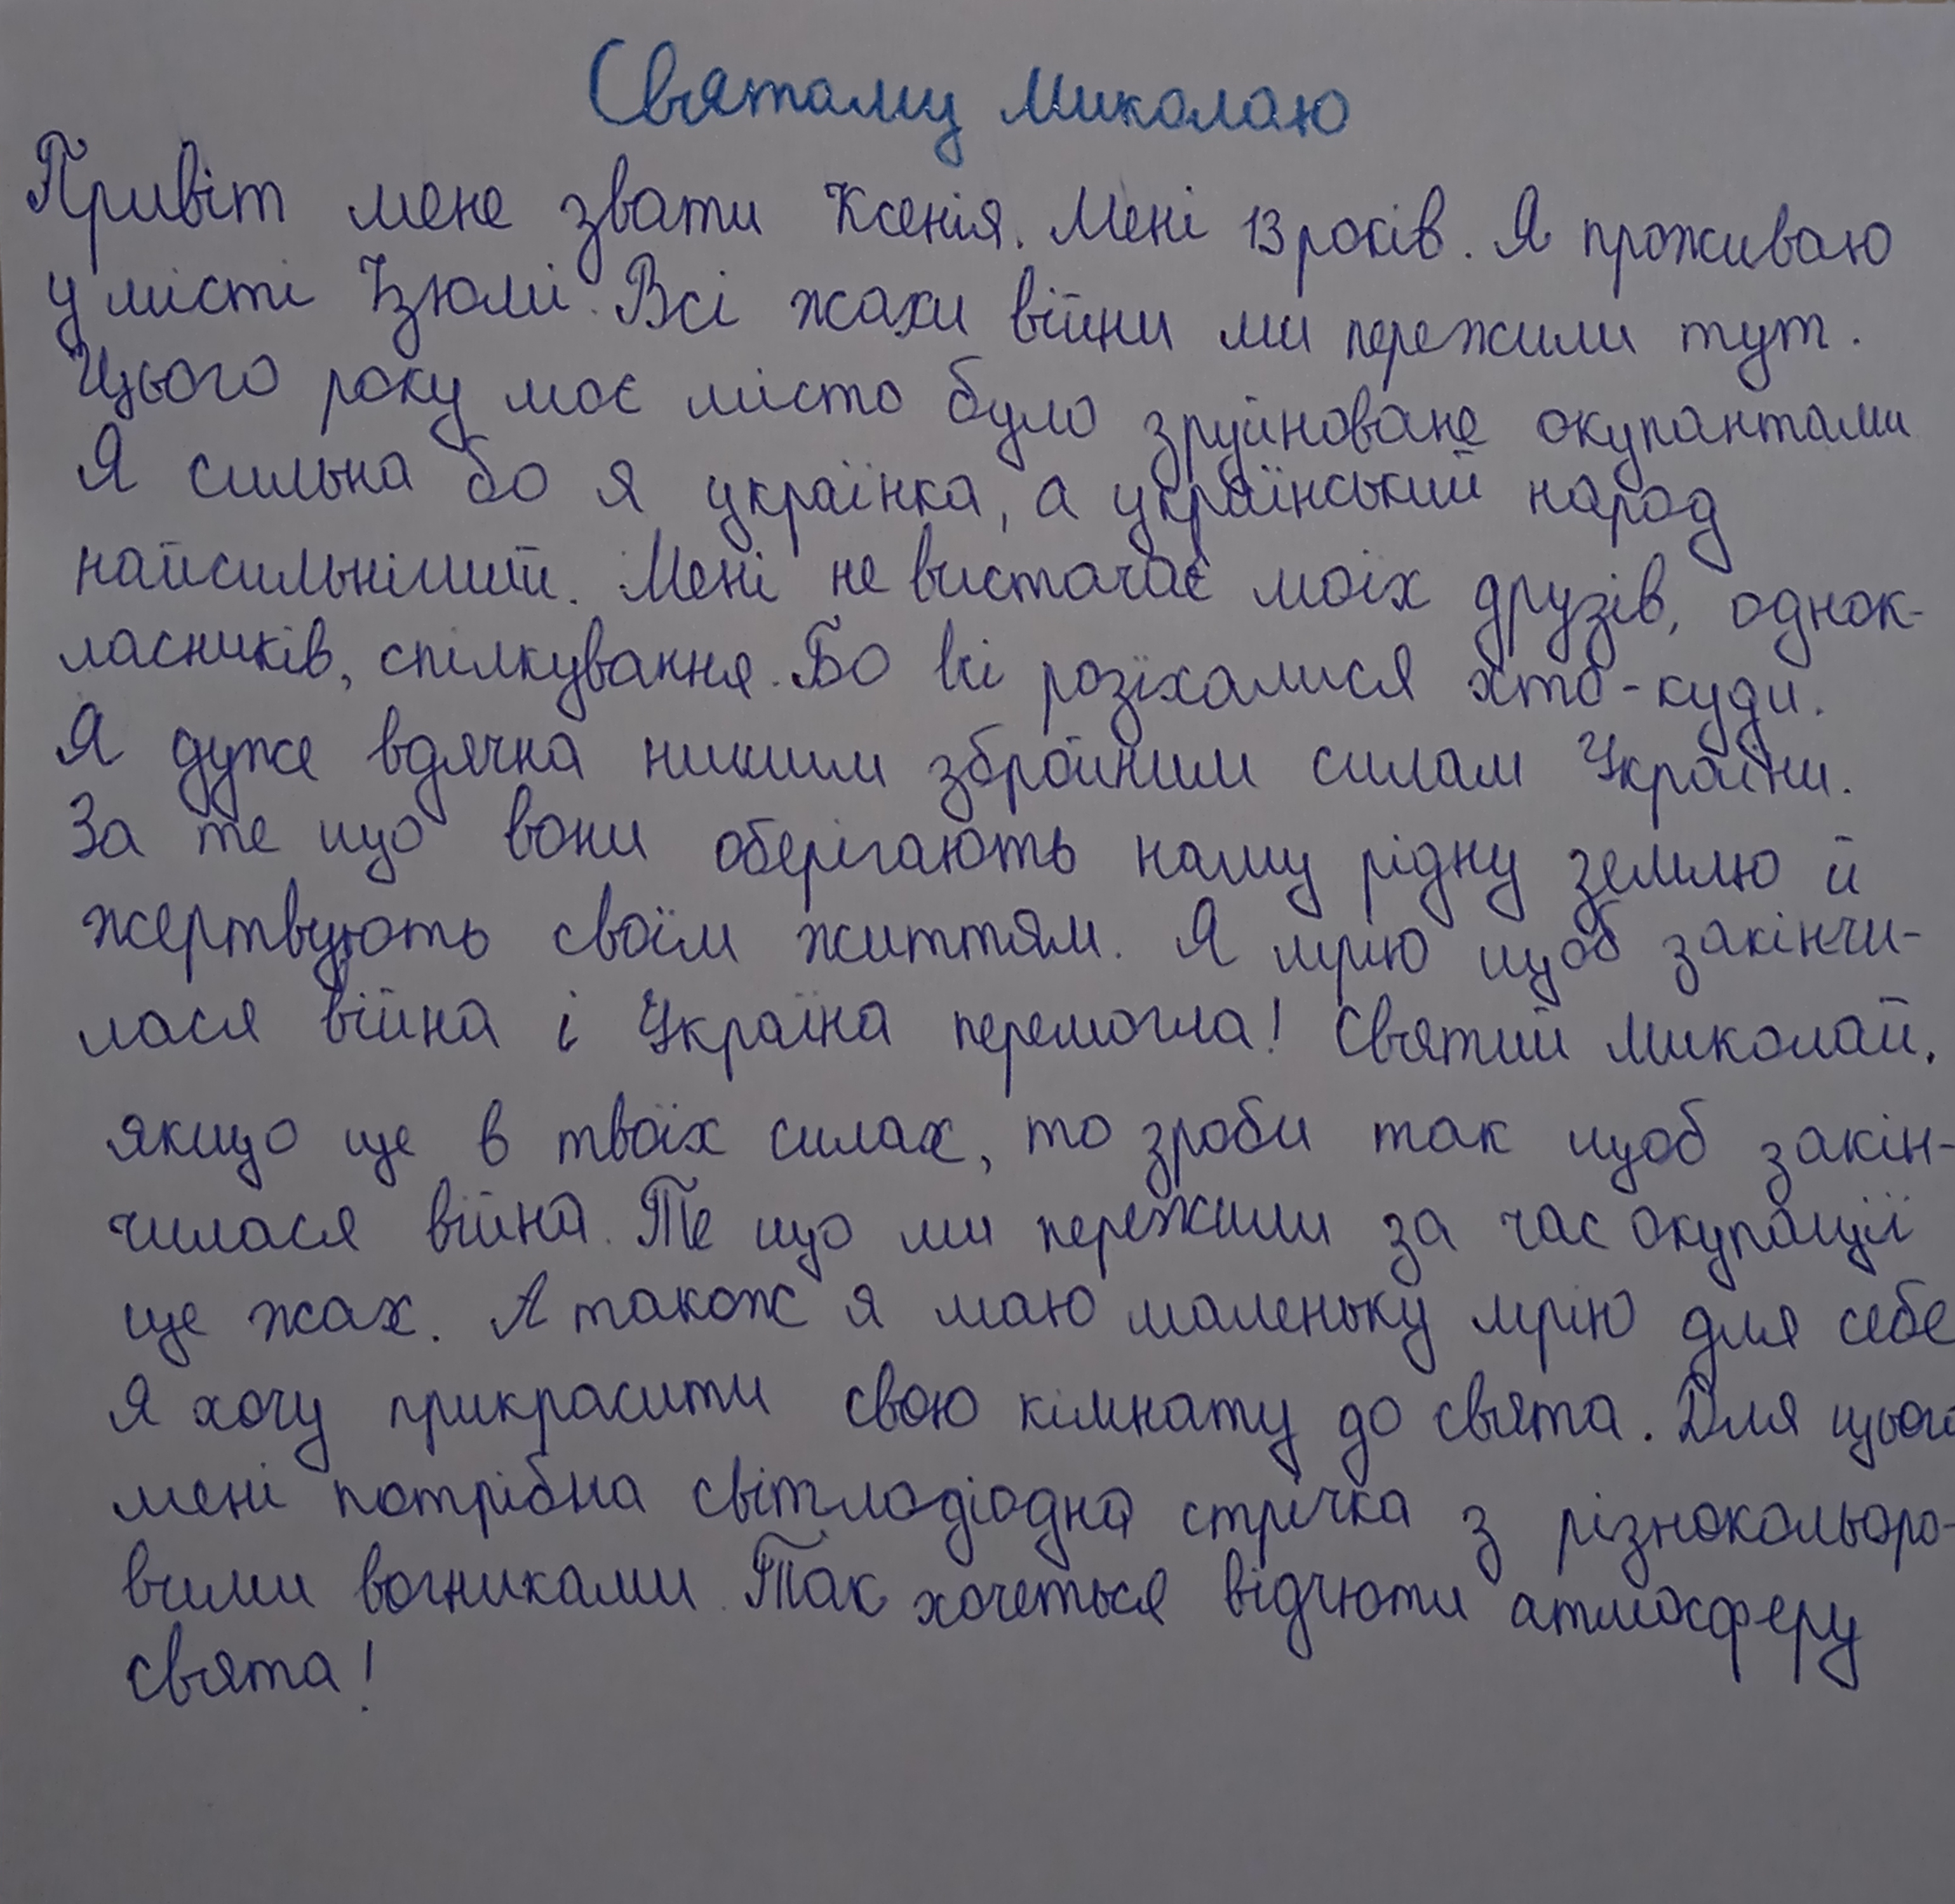 Святому Миколаю
Привіт мене звати Ксенія. Мені 13 років. Я проживаю
у місті Ізюмі. Всі жахи війни ми пережили тут.
Цього року моє місто було зруйноване окупантами
Я сильна бо я українка, а український народ
найсильніший. Мені не вистачає моїх друзів, однок-
ласників, спілкування. Бо всі розїхалися хто-куди.
Я дуже вдячна нишим збройним силам України.
За те що вони оберігають нашу рідну землю й
жертвують своїм життям. Я мрію щоб закінчи-
лася війна і Україна перемогла! Святий Миколай,
якщо це в твоїх силах, то зроби так щоб закін-
чилася війна. Те що ми пережили за час окупації
це жах. А також я маю маленьку мрію для себе
Я хочу прикрасити свою кімнату до свята. Для цього
мені потрібна світлодіодна стрічка з різнокольоро-
вими вогниками. Так хочеться відчюти атмосферу
свята!